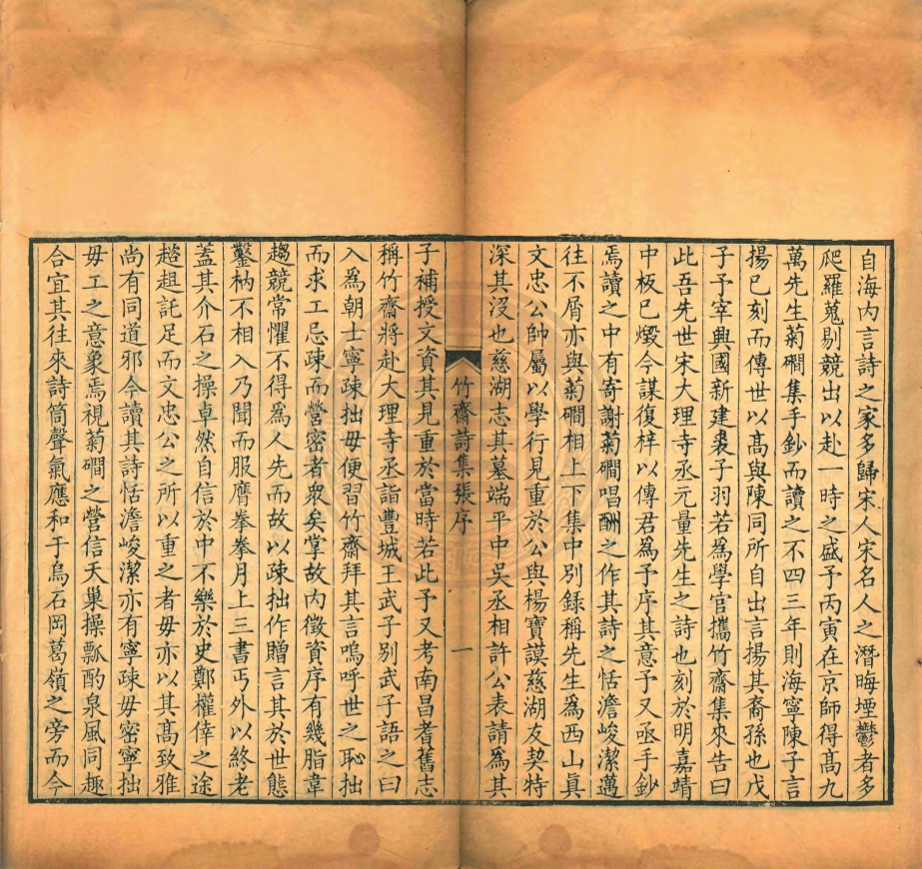 自海内言詩之家多歸宋人宋名人之潛晦堙鬱者多
爬羅蒐剔競出以赴一時之盛予丙寅在京師得髙九
萬先生菊磵集手鈔而讀之不四三年則海寧陳子言
揚已刻而傳世以髙與陳同所自出言揚其裔孫也戊
子予宰興國新建裘子羽若爲學官攜竹齋集來告曰
此吾先世宋大理寺丞元量先生之詩也刻於明嘉靖
中板已燬今謀復梓以傳君爲予序其意予又亟手鈔
焉讀之中有寄謝菊磵唱酬之作其詩之恬澹峻潔邁
往不屑亦與菊磵相上下集中別錄稱先生為西山眞
文忠公帥屬以學行見重於公與楊寶謨慈湖友契特
深其沒也慈湖志其墓端平中吳丞相許公表請爲其
竹齋詩集張序
一
子補授文資其見重於當時若此予又考南昌耆舊志
稱竹齋將赴大理寺丞詣豐城王武子別武子語之曰
入爲朝士寧疎拙毋便習竹齋拜其言嗚呼世之恥拙
而求工忌疎而營密者衆矣掌故内徵資序有幾脂韋
趨競常懼不得爲人先而故以疎拙作贈言其於世態
鑿枘不相入乃聞而服膺拳拳月上三書丐外以終老
蓋其介石之操卓然自信於中不樂於史鄭權倖之途
趦趄託足而文忠公之所以重之者毋亦以其髙致雅
尚有同道邪今讀其詩恬澹峻潔亦有寧疎毋密寧拙
毋工之意象焉視菊磵之營信天巢操瓢酌泉風同趣
合宜其往來詩筒聲氣應和于烏石岡葛嶺之旁而今